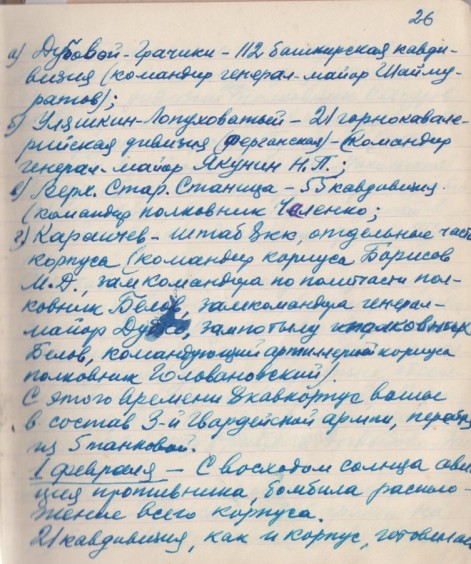 26
а) Дубовой-Грачики - 112 башкирская кавди-
визия (командир генерал-майор Шайму-
ратов);
б) Уляшкин-Лопуховатый - 21 горнокавале-
рийская дивизия (Ферганская) - (командир
генерал-майор Якунин Н.П.;
в) Верх. Стар. Станица - 55 кавдивизия.
(командир полковник Чаленко;
г) Караичев - штаб 8кк, отдельные части
корпуса (командир корпуса Борисов
М.Д., замкомандира по политчасти пол-
ковник Белов, замкомандира генерал-
майор Дудко, зампотылу полковник
Белов, командующий артиллерией корпуса
полковник Головановский).
С этого времени 8 кавкорпус вошел
в состав 3-й Гвардейской армии, перейдя
из 5 танковой.
1 февраля - С восходом солнца авиа-
ция противника, бомбила располо-
жение всего корпуса.
21 кавдивизия, как и корпус, готовилась